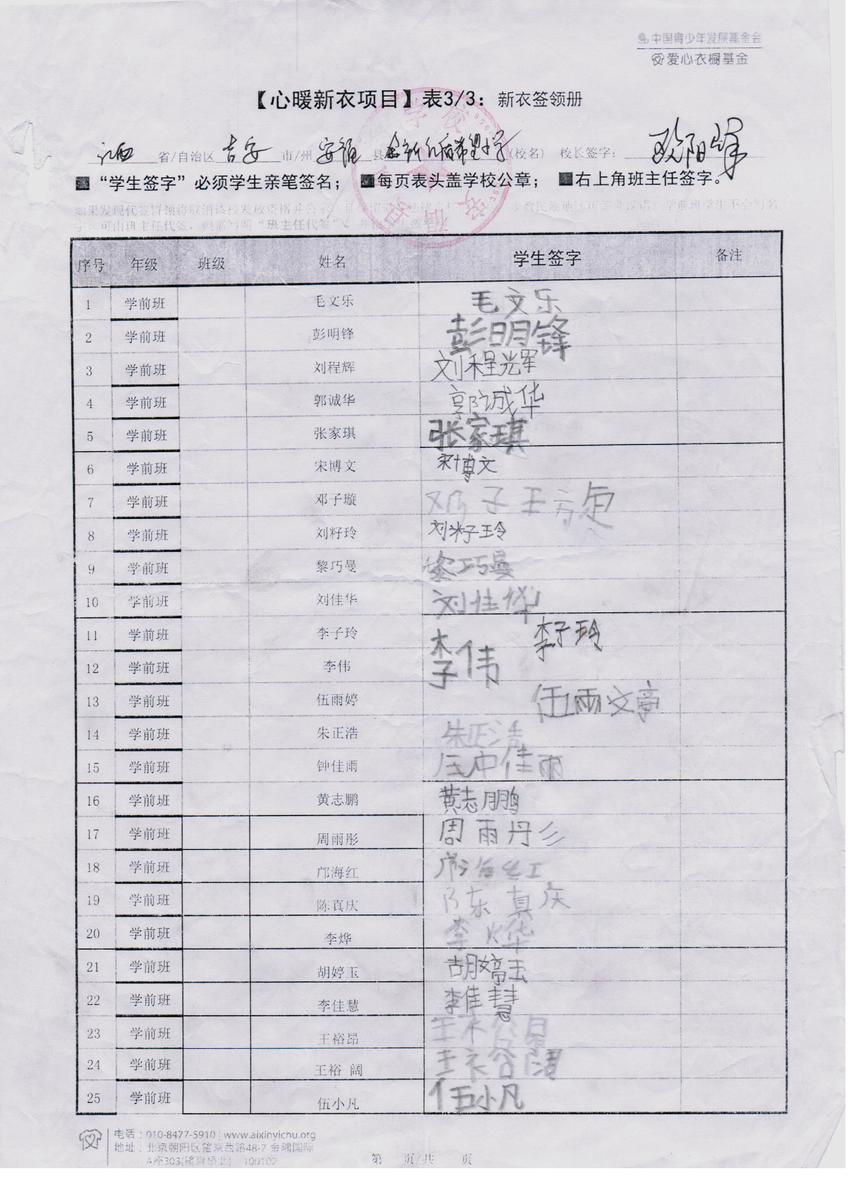 中国青少年发展基金会
爱心衣橱基金
【心暖新衣项目】表3/3：新衣签领册
江西 省/自治区 吉安 市/州 安福 县 希望小学 (校名) 校长签字：欧阳
“学生签字”必须学生亲笔签名； 每页表头盖学校公章； 右上角班主任签字。
序号 年级 班级 姓名 学生签字 备注
1 学前班 毛文乐 毛文乐
2 学前班 彭明锋 彭明锋
3 学前班 刘程辉 刘程辉
4 学前班 郭诚华 郭诚华
5 学前班 张家琪 张家琪
6 学前班 宋博文 宋博文
7 学前班 邓子璇 邓子璇
8 学前班 刘籽玲 刘籽玲
9 学前班 黎巧曼 黎巧曼
10 学前班 刘佳华 刘佳华
11 学前班 李子玲 李子玲
12 学前班 李伟 李伟
13 学前班 伍雨婷 伍雨婷
14 学前班 朱正浩 朱正浩
15 学前班 钟佳雨 钟佳雨
16 学前班 黄志鹏 黄志鹏
17 学前班 周雨彤 周雨彤
18 学前班 邝海红
19 学前班 陈真庆 陈真庆
20 学前班 李烨 李烨
21 学前班 胡婷玉 胡婷玉
22 学前班 李佳慧 李佳慧
23 学前班 王裕昂 王裕昂
24 学前班 王裕 阔 王裕阔
25 学前班 伍小凡 伍小凡
电话：010-8477-5910 | www.aixinyichu.org
地址：北京朝阳区望京西路48-7 金隅国际
A座303 100102
第 页/共 页